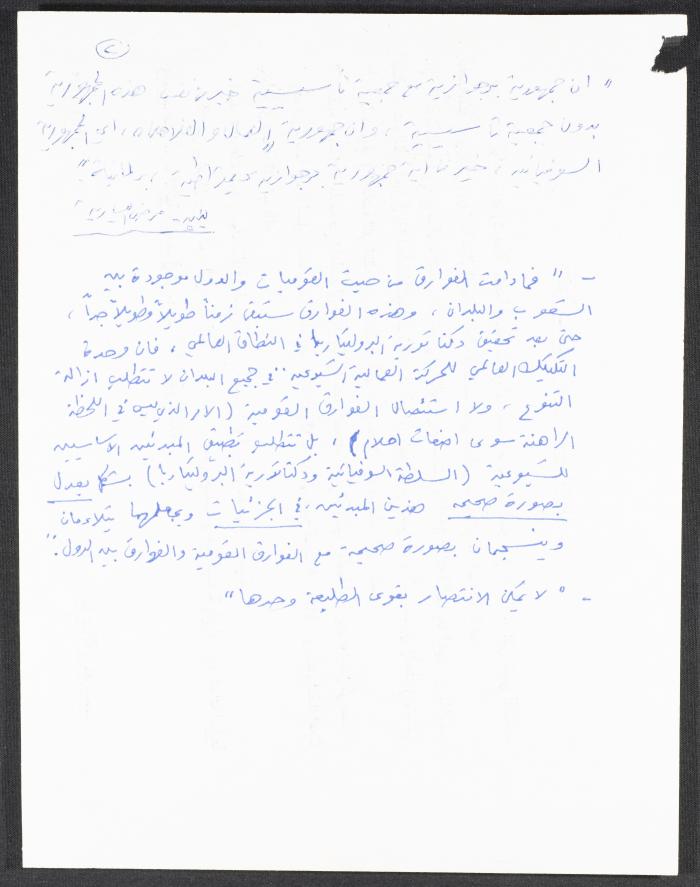 ٢
" ان جمهورية برجوازية مع جمعية تأسيسية خير من نفس هذه الجمهورية
بدون جمعية تأسيسية ، وان جمهورية " العمال والفلاحين ، اي الجمهورية
السوفياتية ، خير من اية جمهورية برجوازية ديمقراطية ، برلمانية "
لينين - مرض اليسارية
- " فما دامت الفوارق من حيث القوميات والدول موجودة بين
الشعوب والبلدان ، وهذه الفوارق ستبقى زمناً طويلاً وطويلاً جداً ،
حتى بعد تحقيق دكتاتورية البروليتاريا في النطاق العالمي ، فان وحدة
التكتيك العالمي للحركة العمالية الشيوعية في جميع البلدان لا تتطلب ازالة
التنوع ، ولا استئصال الفوارق القومية ( الامر الذي ليس في اللحظة
الراهنة سوى اضغاث احلام ) ، بل تتطلب تطبيق المبدئين الاساسيين
للشيوعية ( السلطة السوفياتية ودكتاتورية البروليتاريا ) بشكل يعدل
بصورة صحيحه هذين المبدئين في الجزئيات ويجعلهما يتلاءمان
وينسجمان بصورة صحيحة مع الفوارق القومية والفوارق بين الدول . "
- " لا يمكن الانتصار بقوى الطليعة وحدها "